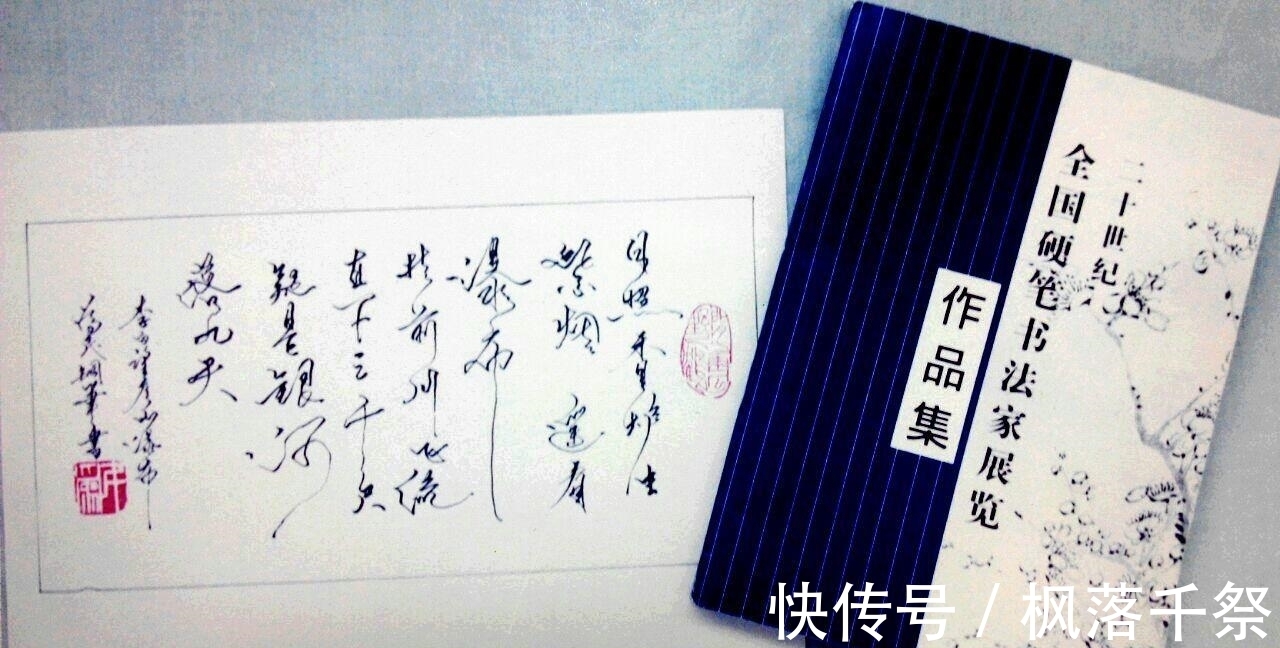 日照香炉生
紫烟遥看
瀑布
挂前川飞流
直下三千尺
疑是银河
落九天
李白望庐山瀑布
钢笔书
二十世纪
全国硬笔书法家展览
作品集
快传号 / 枫落千祭